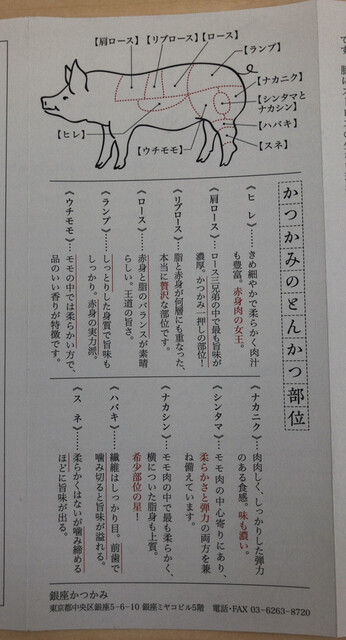 【肩ロース】
【リブロース】
【ロース】
【ランプ】
【ナカニク】
【シンタマと
ナカシン】
【ハバキ】
【スネ】
【ヒレ】
【ウチモモ】
かつかみのとんかつ部位
《ヒレ》……きめ細やかで柔らかく肉汁
も豊富。赤身肉の女王。
《肩ロース》…ロース三兄弟の中で最も旨味が
濃厚。かつかみ一押しの部位!
《リブロース》…脂と赤身が何層にも重なった、
本当に贅沢な部位です。
《ロース》……赤身と脂のバランスが素晴
らしい。王道の旨さ。
《ランプ》……しっとりした身質で旨味も
しっかり。赤身の実力派。
《ウチモモ》……モモの中では柔らかい方で、
品のいい香りが特徴です。
《ナカニク》……肉肉しく、しっかりした弾力
のある食感。味も濃い。
《シンタマ》……モモ肉の中心寄りにあり、
柔らかさと弾力の両方を兼
ね備えています。
《ナカシン》……モモ肉の中で最も柔らかく、
横についた脂身も上質。
希少部位の星!
《ハバキ》……繊維はしっかり目。前歯で
噛み切ると旨味が溢れる。
《スネ》……柔らかくはないが噛み締める
ほどに旨味が出る。
銀座かつかみ
東京都中央区銀座5-6-10 銀座ミヤコビル5階 電話・FAX 03-6263-8720